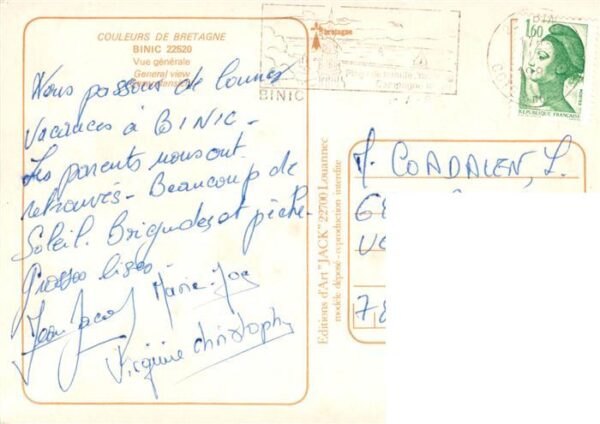 COULEURS DE BRETAGNE
BINIC 22520
Vue générale
General view
Nous passons de bonnes
vacances à BINIC -
Les parents nous ont
retrouvés - Beaucoup de
Soleil. Baignades et pêche
Grosses bises -
Jean Jacques Marie-Jo
Virginie Christophe
Editions d'Art "JACK" 22700 Louannec
modèle déposé - reproduction interdite
bretagne
BINIC
1,60
REPUBLIQUE FRANÇAISE
COADALEN, L.